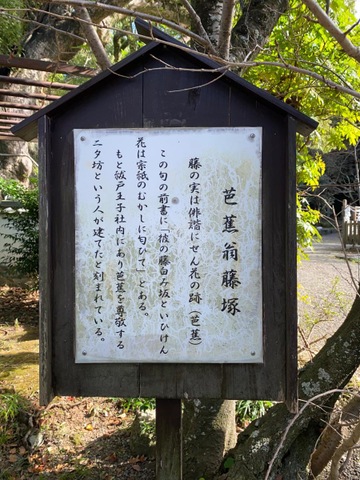 芭蕉翁藤塚
藤の実は俳諧にせん花の跡（芭蕉）
この句の前書に「彼の藤白み坂といひけん
花は宗祇のむかしに匂ひて」とある。
もと祓戸王子社内にあり芭蕉を尊敬する
二夕坊という人が建てたと刻まれている。